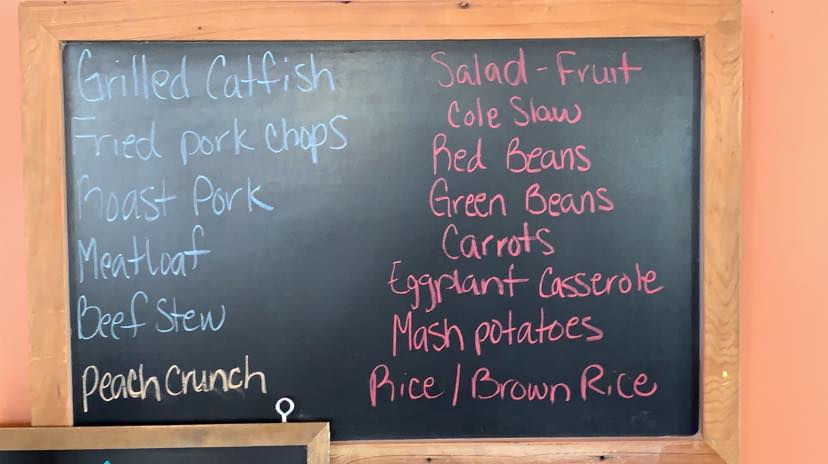 Grilled Catfish
Fried pork chops
Roast Pork
Meatloaf
Beef Stew
Peach Crunch
Salad - Fruit
Cole Slaw
Red Beans
Green Beans
Carrots
Eggplant Casserole
Mash potatoes
Rice / Brown Rice